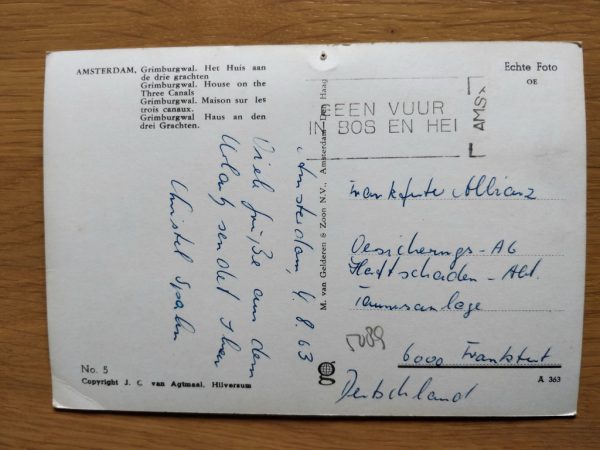 AMSTERDAM, Grimburgwal. Het Huis aan
de drie grachten
Grimburgwal. House on the
Three Canals
Grimburgwal. Maison sur les
trois canaux.
Grimburgwal Haus an den
drei Grachten.
Amsterdam, 4.8.63
Viele Grüße aus dem
Urlaub sendet Ihnen
Christel Spahn
No. 5
Copyright J. C. van Agtmaal, Hilversum
M. van Gelderen & Zoon N.V., Amsterdam - Den Haag
Echte Foto
OE
GEEN VUUR
IN BOS EN HEI
AMS
Frankfurter Allianz
Versicherungs-AG
Haftschaden-Abt.
Taunusanlage
6000 Frankfurt
Deutschland
5089
A 363